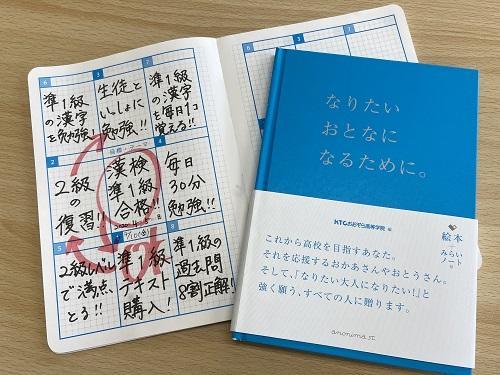 6
準1級
の漢字
を勉強!
3
生徒と
いっしょに
勉強!!
7
準1級
の漢字
を毎日1コ
覚える!!
2
2級
の
復習!!
目標・テーマ
漢検
準1級
合格!!
4
毎日
30分
勉強!!
5
2級レベル
で満点
とる!!
準1級
テキスト
購入!
OK
8
準1級の
過去問
8割正解!
なりたい
おとなに
なるために。
KTCおおぞら高等学院 編
絵本
みらいノート
これから高校を目指すあなた。
それを応援するおかあさんやおとうさん。
そして、「なりたい大人になりたい!」と
強く願う、すべての人に贈ります。
anonima st.